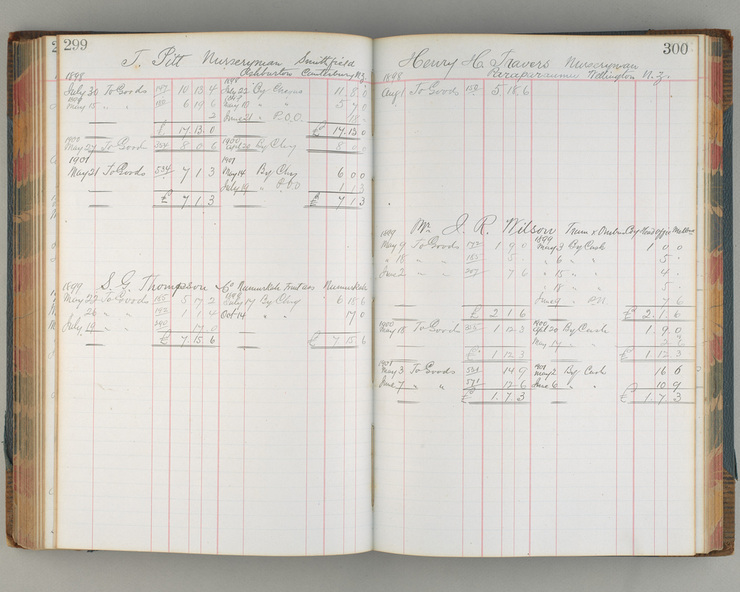 299
T. Pitt Nurseryman Smithfield
Ashburton Canterbury N.Z.
1898 1898
July 30 To Goods 10 13 4 July 22 By 11 8
1899 May 15 " " 6 19 6 1899 " " 5 7 0
2 June 21 " P.O.O. 18
£ 17 13 0 £ 17 13 0
1900 May 24 To Goods 8 0 6 1900 Sept 20 By Chq 8 0 0
1901 1901
May 21 To Goods 534 7 1 3 May 14 By Chq 6 0 0
July 19 " P.O.O 1 1 3
£ 7 1 3 £ 7 1 3
1899 S. G. Thompson & Co Nunurkah
May 22 To Goods 185 5 17 2 July 17 By Chq 6 18 6
" 26 " " 192 1 1 4 Oct 14 " 17 0
July 19 " " 240 17 0
£ 7 15 6 £ 7 15 6
300
Henry H. Travers Nurseryman
Wellington N.Z.
1898
Aug 1 To Goods 152 5 18 6
Mr. J. R. Wilson
1899 1899
May 9 To Goods 1 9 0 May 3 By Cash 1 0 0
" 18 " " 5 " 6 " " 5
June 2 " " 7 6 " 15 " " 4
" 18 " " 5
June 9 " 7 6
£ 2 1 6 £ 2 1 6
1900 May 18 To Goods 1 12 3 1900 Sept 20 By Cash 1 9 0
May 17 "
£ 1 12 3 £ 1 12 3
1901 May 3 To Goods 521 14 9 1901 May 2 By Cash 16 6
June 7 " " 571 12 6 June 6 " " 10 9
£ 1 7 3 £ 1 7 3